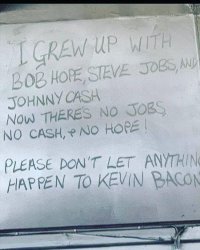 I GREW UP WITH
BOB HOPE, STEVE JOBS, AND
JOHNNY CASH
NOW THERES NO JOBS,
NO CASH, & NO HOPE!
PLEASE DON'T LET ANYTHING
HAPPEN TO KEVIN BACON